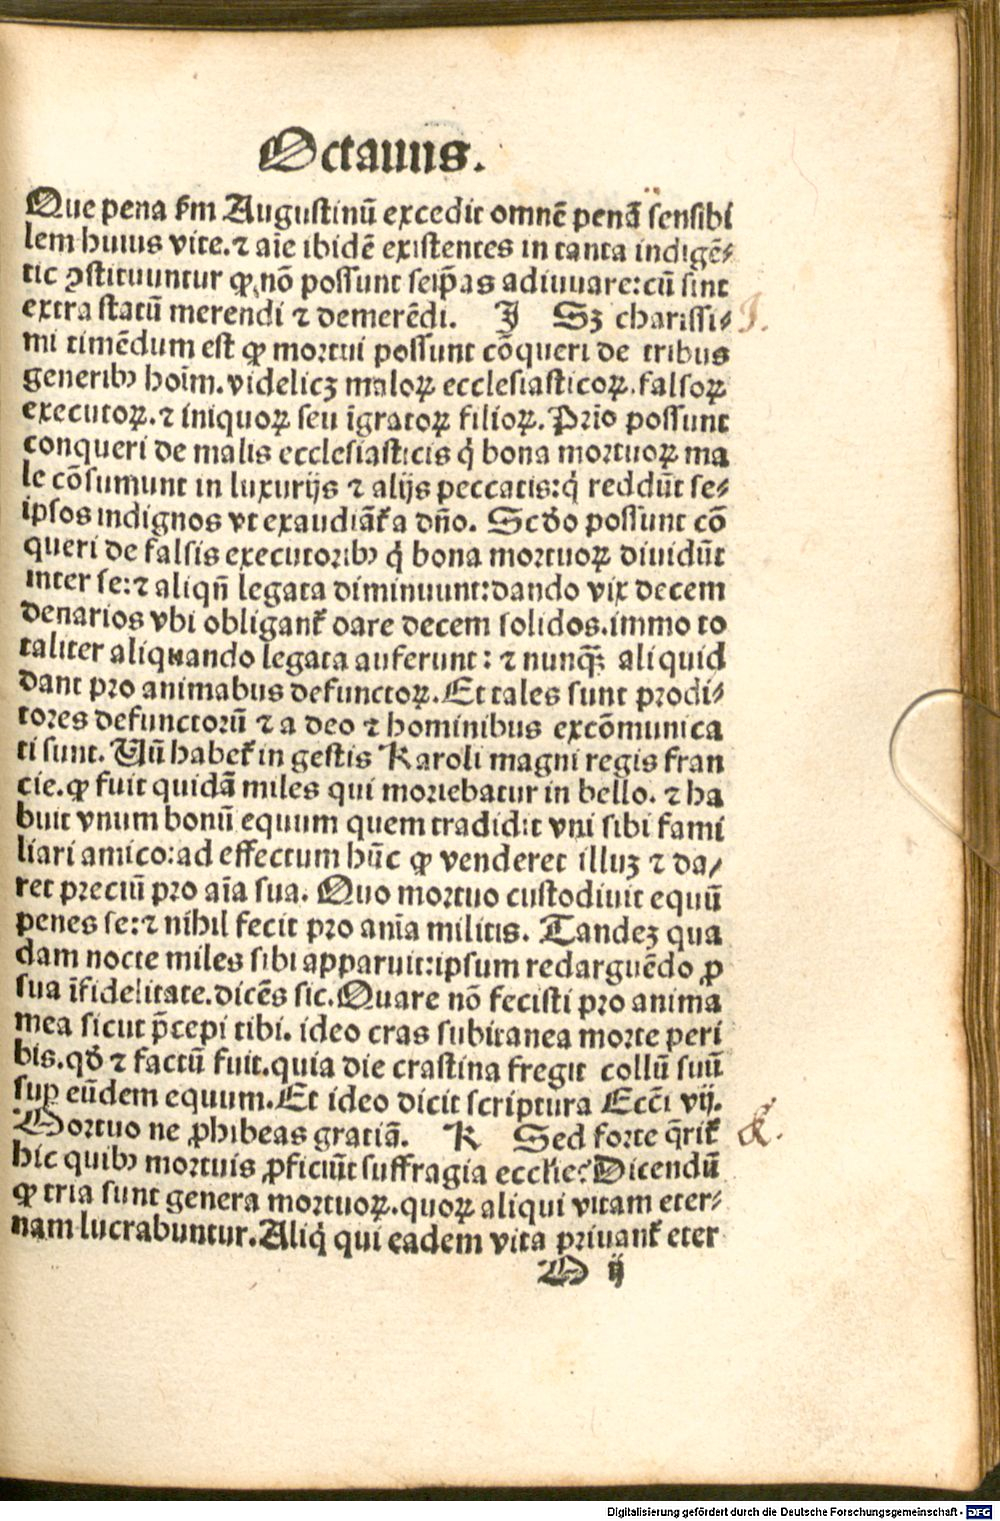 Octauus.
Que pena ẜm Augustinū excedit omnē penā sensibi
lem huius vite. ⁊ aīe ibidē existentes in tanta indigē⸗
tic ꝯstituuntur ꝙ nō possunt seip̄as adiuuare: cū sint
extra statū merendi ⁊ demerēdi. J Sꝫ charissi⸗
J.
mi timēdum est ꝙ mortui possunt cōqueri de tribus
generibꝰ hoīm. videlicꝫ maloꝝ ecclesiasticoꝝ. falsoꝝ
executoꝝ. ⁊ iniquoꝝ seu īgratoꝝ filioꝝ. Prīo possunt
conqueri de malis ecclesiasticis q̇ bona mortuoꝝ ma
le cōsumunt in luxurijs ⁊ alijs peccatis: q̇ reddūt se⸗
ipsos indignos vt exaudiāt᷑ a dn̄o. Scd̓o possunt cō
queri de falsis executoribꝰ q̇ bona mortuoꝝ diuidūt
inter se: ⁊ aliqn̄ legata diminuunt: dando vix decem
denarios vbi obligant᷑ dare decem solidos. immo to
taliter aliquando legata auferunt: ⁊ nunq̄ꝫ aliquid
dant pro animabus defunctoꝝ. Et tales sunt prodi⸗
tores defunctorū ⁊ a deo ⁊ hominibus excōmunica
ti sunt. Uñ habet᷑ in gestis Karoli magni regis fran
cie. ꝙ fuit quidā miles qui moriebatur in bello. ⁊ ha
buit vnum bonū equum quem tradidit vni sibi fami
liari amico: ad effectum hūc ꝙ venderet illuꝫ ⁊ da⸗
ret preciū pro aīa sua. Quo mortuo custodiuit equū
penes se: ⁊ nihil fecit pro anīa militis. Tandeꝫ qua
dam nocte miles sibi apparuit: ipsum redarguēdo ꝓ
sua īfidelitate. dicēs sic. Quare nō fecisti pro anima
mea sicut p̄cepi tibi. ideo cras subitanea morte peri
bis. qd̓ ⁊ factū fuit. quia die crastina fregit collū suū
suꝑ eūdem equum. Et ideo dicit scriptura Eccī vij.
Mortuo ne ꝓhibeas gratiā. K Sed forte q̄rit᷑
K.
hic quibꝰ mortuis ꝓficiūt suffragia ecclie? Dicendū
ꝙ tria sunt genera mortuoꝝ. quoꝝ aliqui vitam eter⸗
nam lucrabuntur. Aliq̇ qui eadem vita priuant᷑ eter
O ij
Digitalisierung gefördert durch die Deutsche Forschungsgemeinschaft - DFG